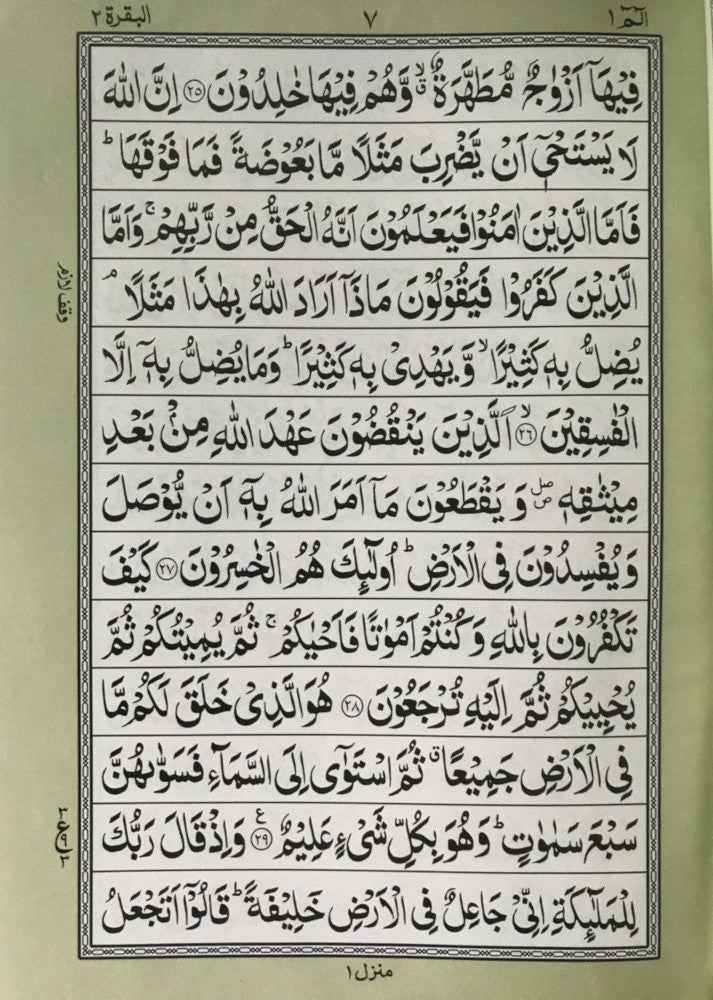 الٓمّٓ ١ ٧ البقرة ٢
فِيْهَاۤ اَزْوَاجٌ مُّطَهَّرَةٌ ۙۗ وَّهُمْ فِيْهَا خٰلِدُوْنَ ﴿٢٥﴾ اِنَّ اللّٰهَ
لَا يَسْتَحْيٖۤ اَنْ يَّضْرِبَ مَثَلًا مَّا بَعُوْضَةً فَمَا فَوْقَهَا ؕ
فَاَمَّا الَّذِيْنَ اٰمَنُوْا فَيَعْلَمُوْنَ اَنَّهُ الْحَقُّ مِنْ رَّبِّهِمْ ۚ وَاَمَّا
الَّذِيْنَ كَفَرُوْا فَيَقُوْلُوْنَ مَاذَاۤ اَرَادَ اللّٰهُ بِهٰذَا مَثَلًا ۘ
وقف لازم
يُضِلُّ بِهٖ كَثِيْرًا ۙ وَّيَهْدِيْ بِهٖ كَثِيْرًا ؕ وَمَا يُضِلُّ بِهٖۤ اِلَّا
الْفٰسِقِيْنَ ۙ﴿٢٦﴾ الَّذِيْنَ يَنْقُضُوْنَ عَهْدَ اللّٰهِ مِنْۢ بَعْدِ
مِيْثٰقِهٖ ۪ وَيَقْطَعُوْنَ مَاۤ اَمَرَ اللّٰهُ بِهٖۤ اَنْ يُّوْصَلَ
وَيُفْسِدُوْنَ فِي الْاَرْضِ ؕ اُولٰٓئِكَ هُمُ الْخٰسِرُوْنَ ﴿٢٧﴾ كَيْفَ
تَكْفُرُوْنَ بِاللّٰهِ وَكُنْتُمْ اَمْوٰتًا فَاَحْيَاكُمْ ۚ ثُمَّ يُمِيْتُكُمْ ثُمَّ
يُحْيِيْكُمْ ثُمَّ اِلَيْهِ تُرْجَعُوْنَ ﴿٢٨﴾ هُوَ الَّذِيْ خَلَقَ لَكُمْ مَّا
فِي الْاَرْضِ جَمِيْعًا ۗ ثُمَّ اسْتَوٰۤى اِلَى السَّمَآءِ فَسَوّٰىهُنَّ
سَبْعَ سَمٰوٰتٍ ؕ وَهُوَ بِكُلِّ شَيْءٍ عَلِيْمٌ ﴿٢٩﴾ ع وَاِذْ قَالَ رَبُّكَ
لِلْمَلٰٓئِكَةِ اِنِّيْ جَاعِلٌ فِي الْاَرْضِ خَلِيْفَةً ؕ قَالُوْۤا اَتَجْعَلُ
منزل ١